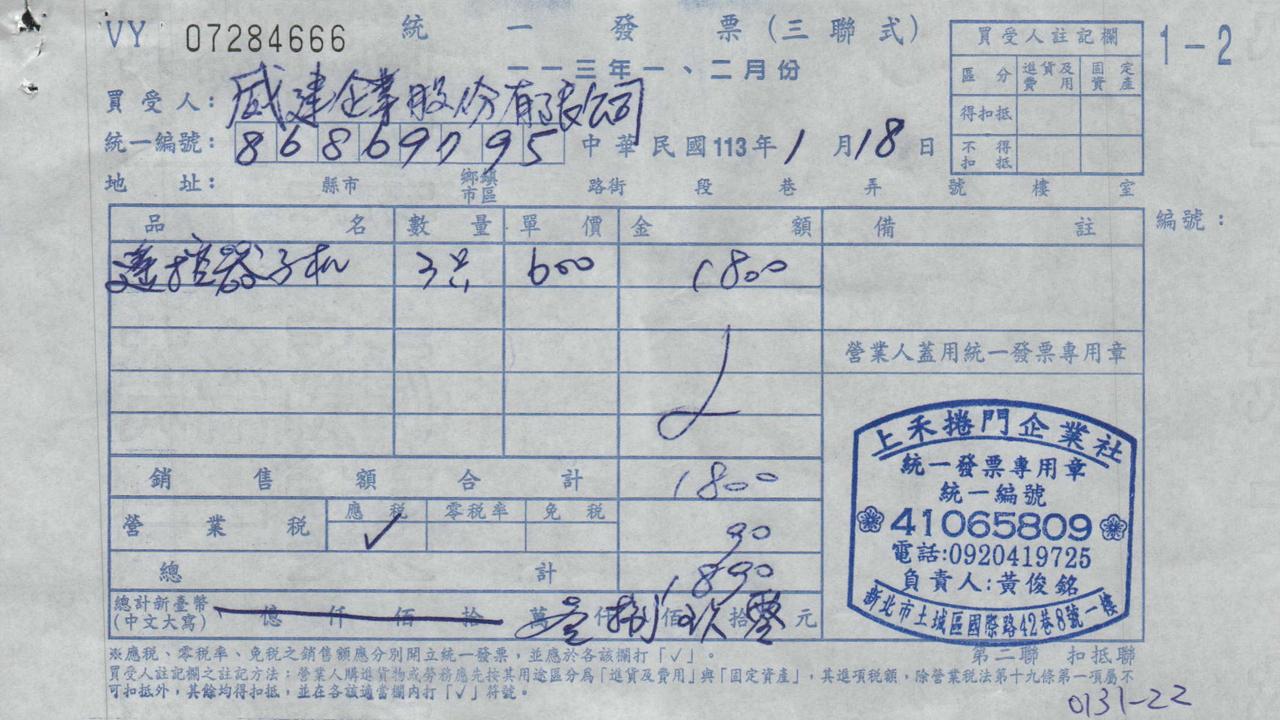 VY 07284666 統一發票(三聯式) 1-2
一一三年一、二月份
買受人註記欄
區分 進貨及費用 固定資產
得扣抵
不得扣抵
買受人:威建企業股份有限公司
統一編號:86869795 中華民國113年1月18日
地址: 縣市 鄉鎮市區 路街 段 巷 弄 號 樓 室
編號:
品名 數量 單價 金額 備註
遙控器子机 3只 600 1800
營業人蓋用統一發票專用章
銷售額合計 1800
營業稅 應稅 ✓ 零稅率 免稅 90
總計 1890
總計新臺幣(中文大寫) 億 仟 佰 拾 萬 壹仟捌佰玖拾零元
上禾捲門企業社
統一發票專用章
統一編號
41065809
電話:0920419725
負責人:黃俊銘
新北市土城區國際路42巷8號一樓
第二聯 扣抵聯
※應稅、零稅率、免稅之銷售額應分別開立統一發票,並應於各該欄打「✓」。
買受人註記欄之註記方法:營業人購進貨物或勞務應先按其用途區分為「進貨及費用」與「固定資產」,其進項稅額,除營業稅法第十九條第一項屬不
可扣抵外,其餘均得扣抵,並在各該適當欄內打「✓」符號。
0131-22